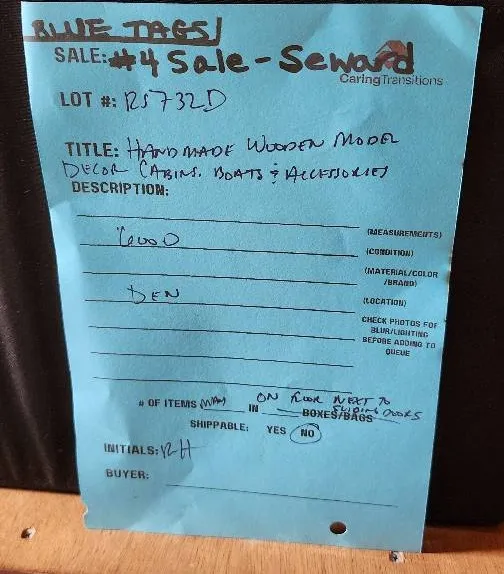 BLUE TAGS!
SALE: #4 Sale - Seward
CaringTransitions
LOT #: RS732D
TITLE: HANDMADE WOODEN MODEL
DECOR CABINS, BOATS & ACCESSORIES
DESCRIPTION:
(MEASUREMENTS)
GOOD (CONDITION)
(MATERIAL/COLOR
/BRAND)
DEN (LOCATION)
CHECK PHOTOS FOR
BLUR/LIGHTING
BEFORE ADDING TO
QUEUE
ON FLOOR NEXT TO
SLIDING DOORS
# OF ITEMS MANY IN BOXES/BAGS
SHIPPABLE: YES NO
INITIALS: RH
BUYER: